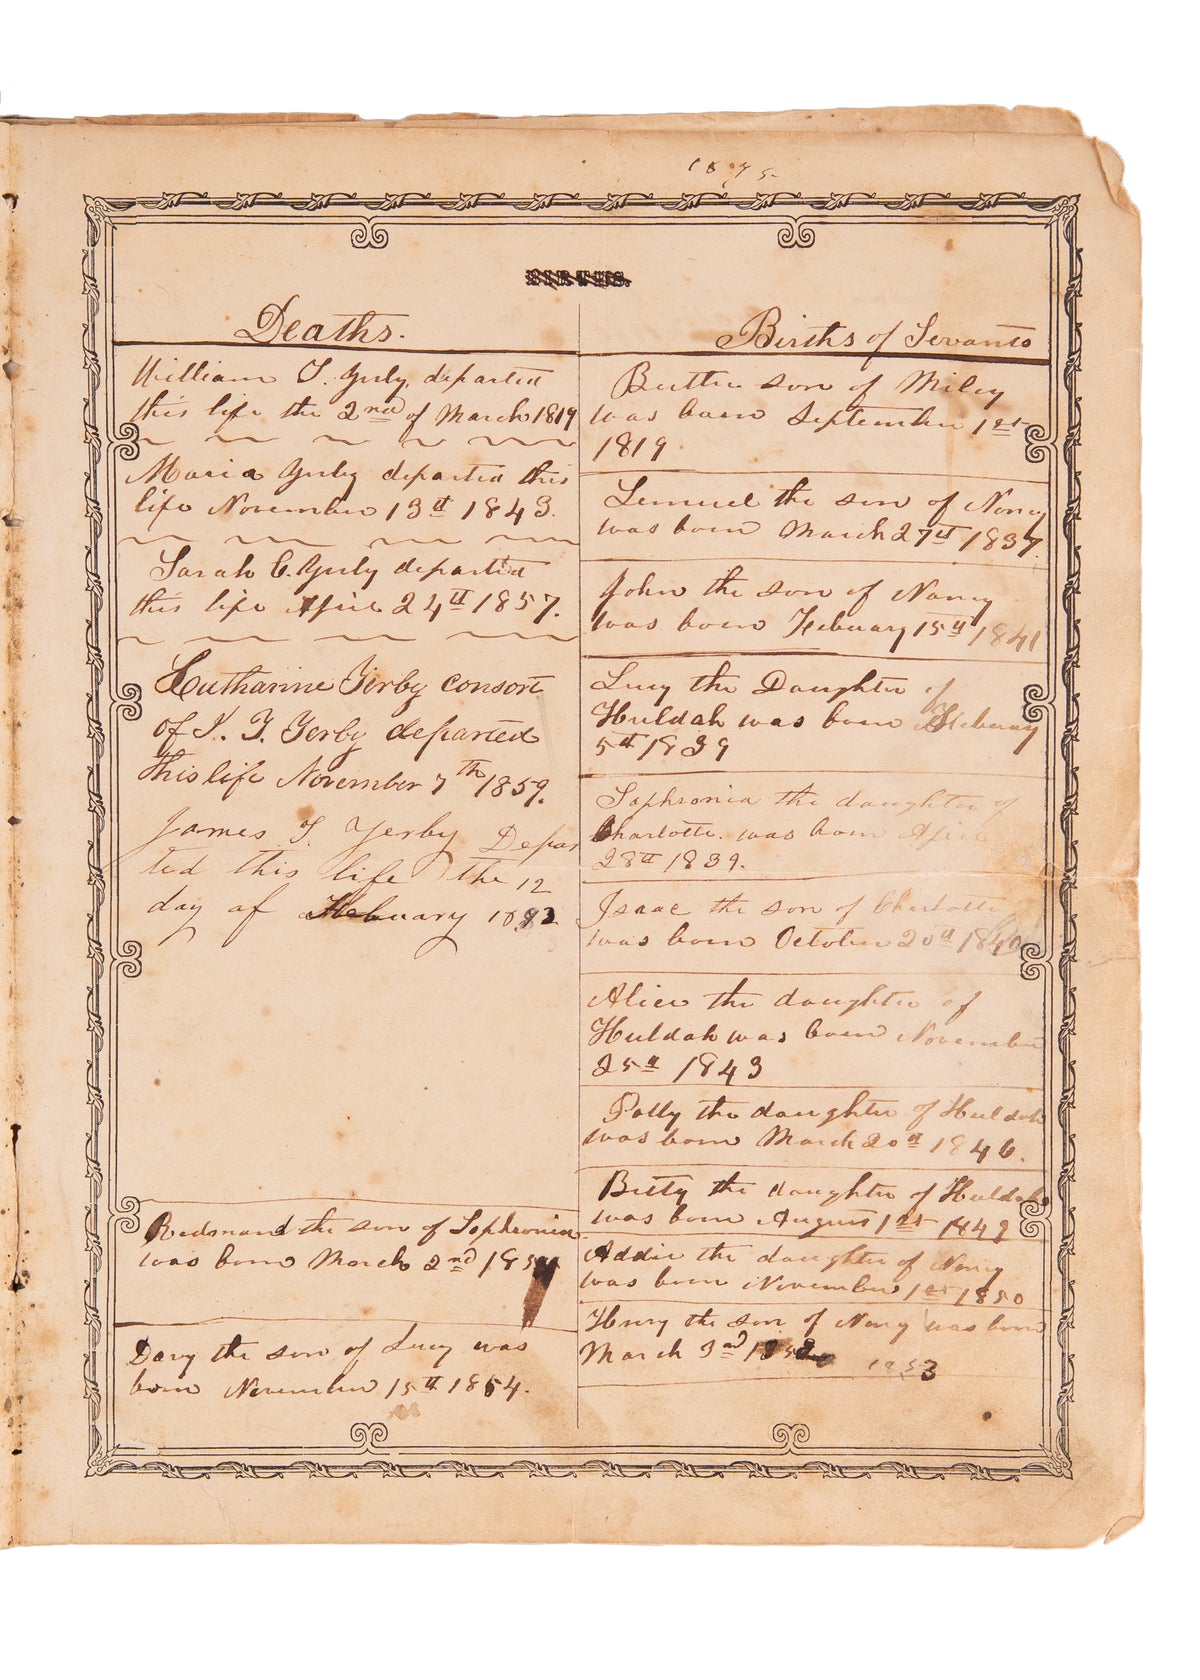 1875
BIRTHS.
Deaths.
William T. Yerby, departed
this life the 2nd of March 1819
Maria Yerby departed this
life November 13th 1843.
Sarah C. Yerby departed
this life April 24th 1857.
Catharine Yerby consort
of Yerby departed
this life November 7th 1859.
James T. Yerby Depar
ted this life the 12
day of February
Redmand the son of Sophronia
was born March 2nd
Davy the son of Lucy was
born November 15th 1854.
Births of Servants
son of Miley
was born September 1st
1819
Lemuel the son of Nancy
was born March 27th 1837.
John the son of Nancy
was born February 15th 1841
Lucy the Daughter of
Huldah was born February
5th 1839
Sophronia the daughter of
Charlotte. was born April
28th 1839.
Isaac the son of Charlotte
was born October 20th 1840
Alice the daughter of
Huldah was born November
25th 1843
Polly the daughter of Huldah
was born March 20th 1846.
Betty the daughter of Huldah
was born August 1st 1849
Addie the daughter of Nancy
was born November 1st 1850
Henry the son of Nancy was born
March 3rd 1853